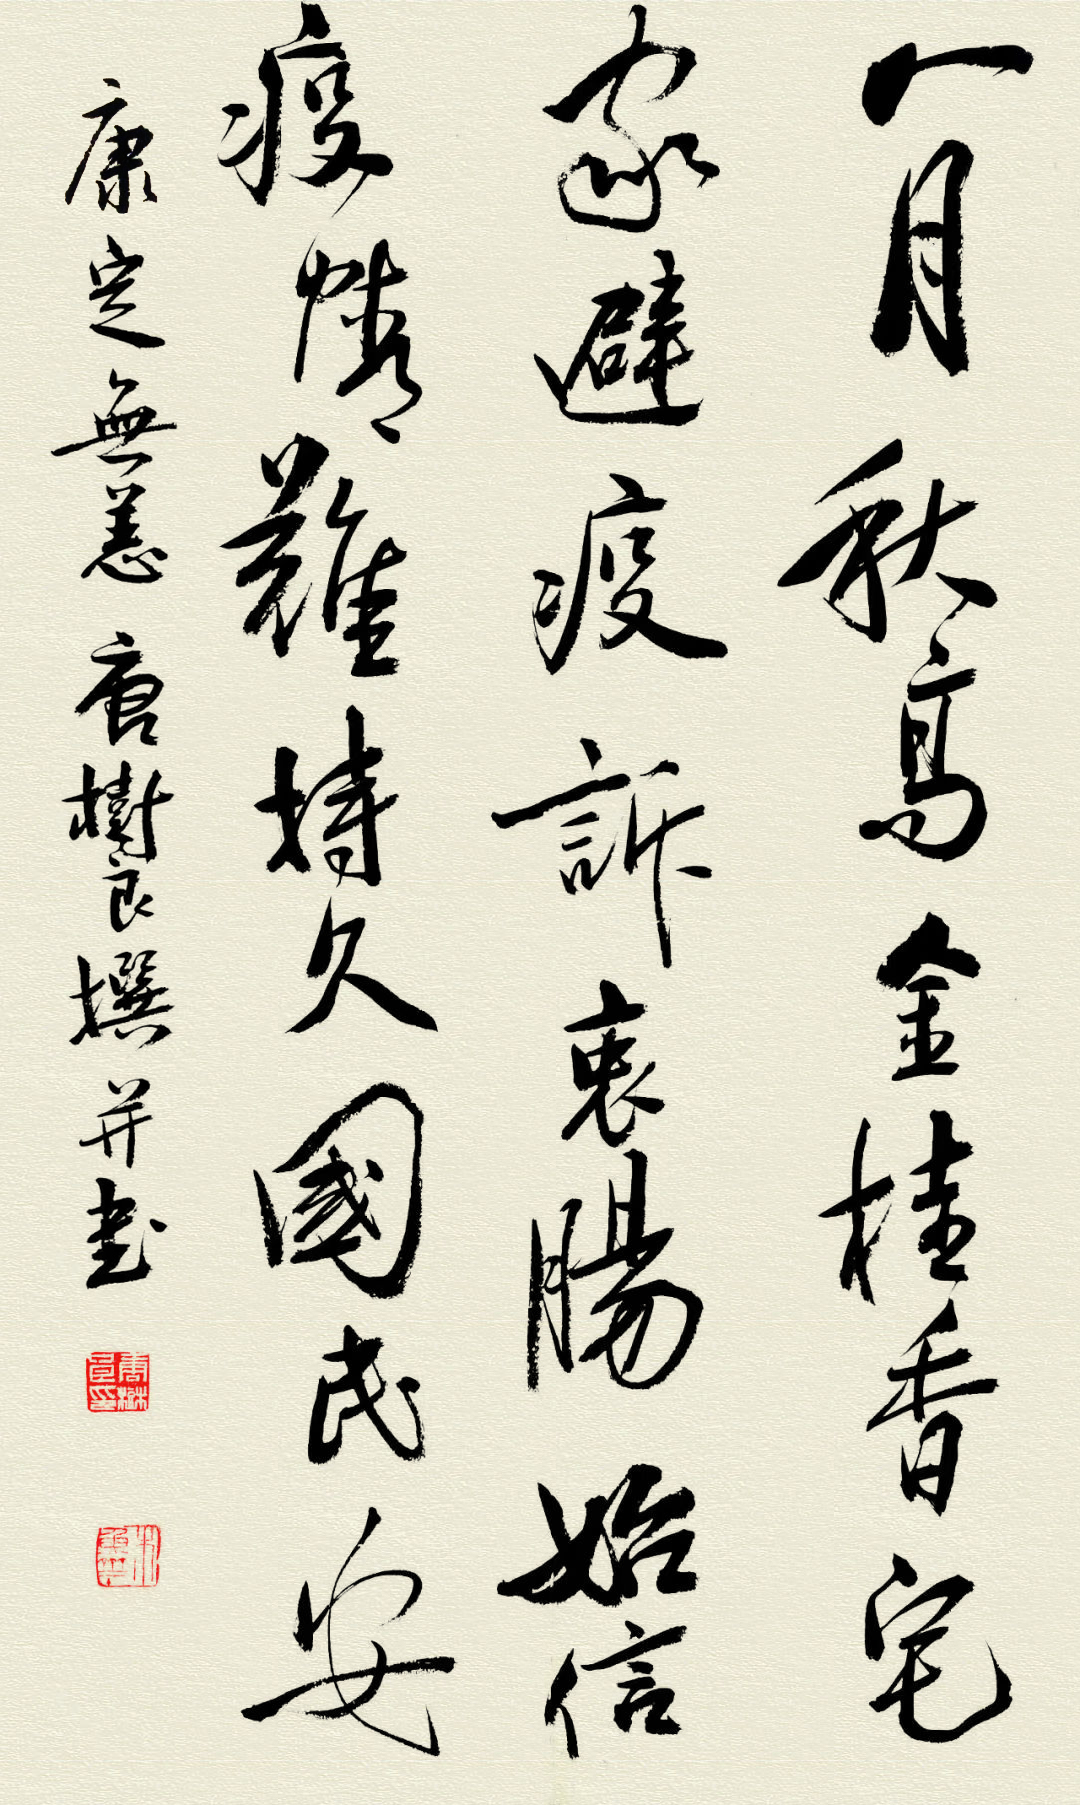 八月秋高金桂香宅
家避疫訴衷腸始信
疫情難持久國民安
康定無恙 唐樹良撰并书